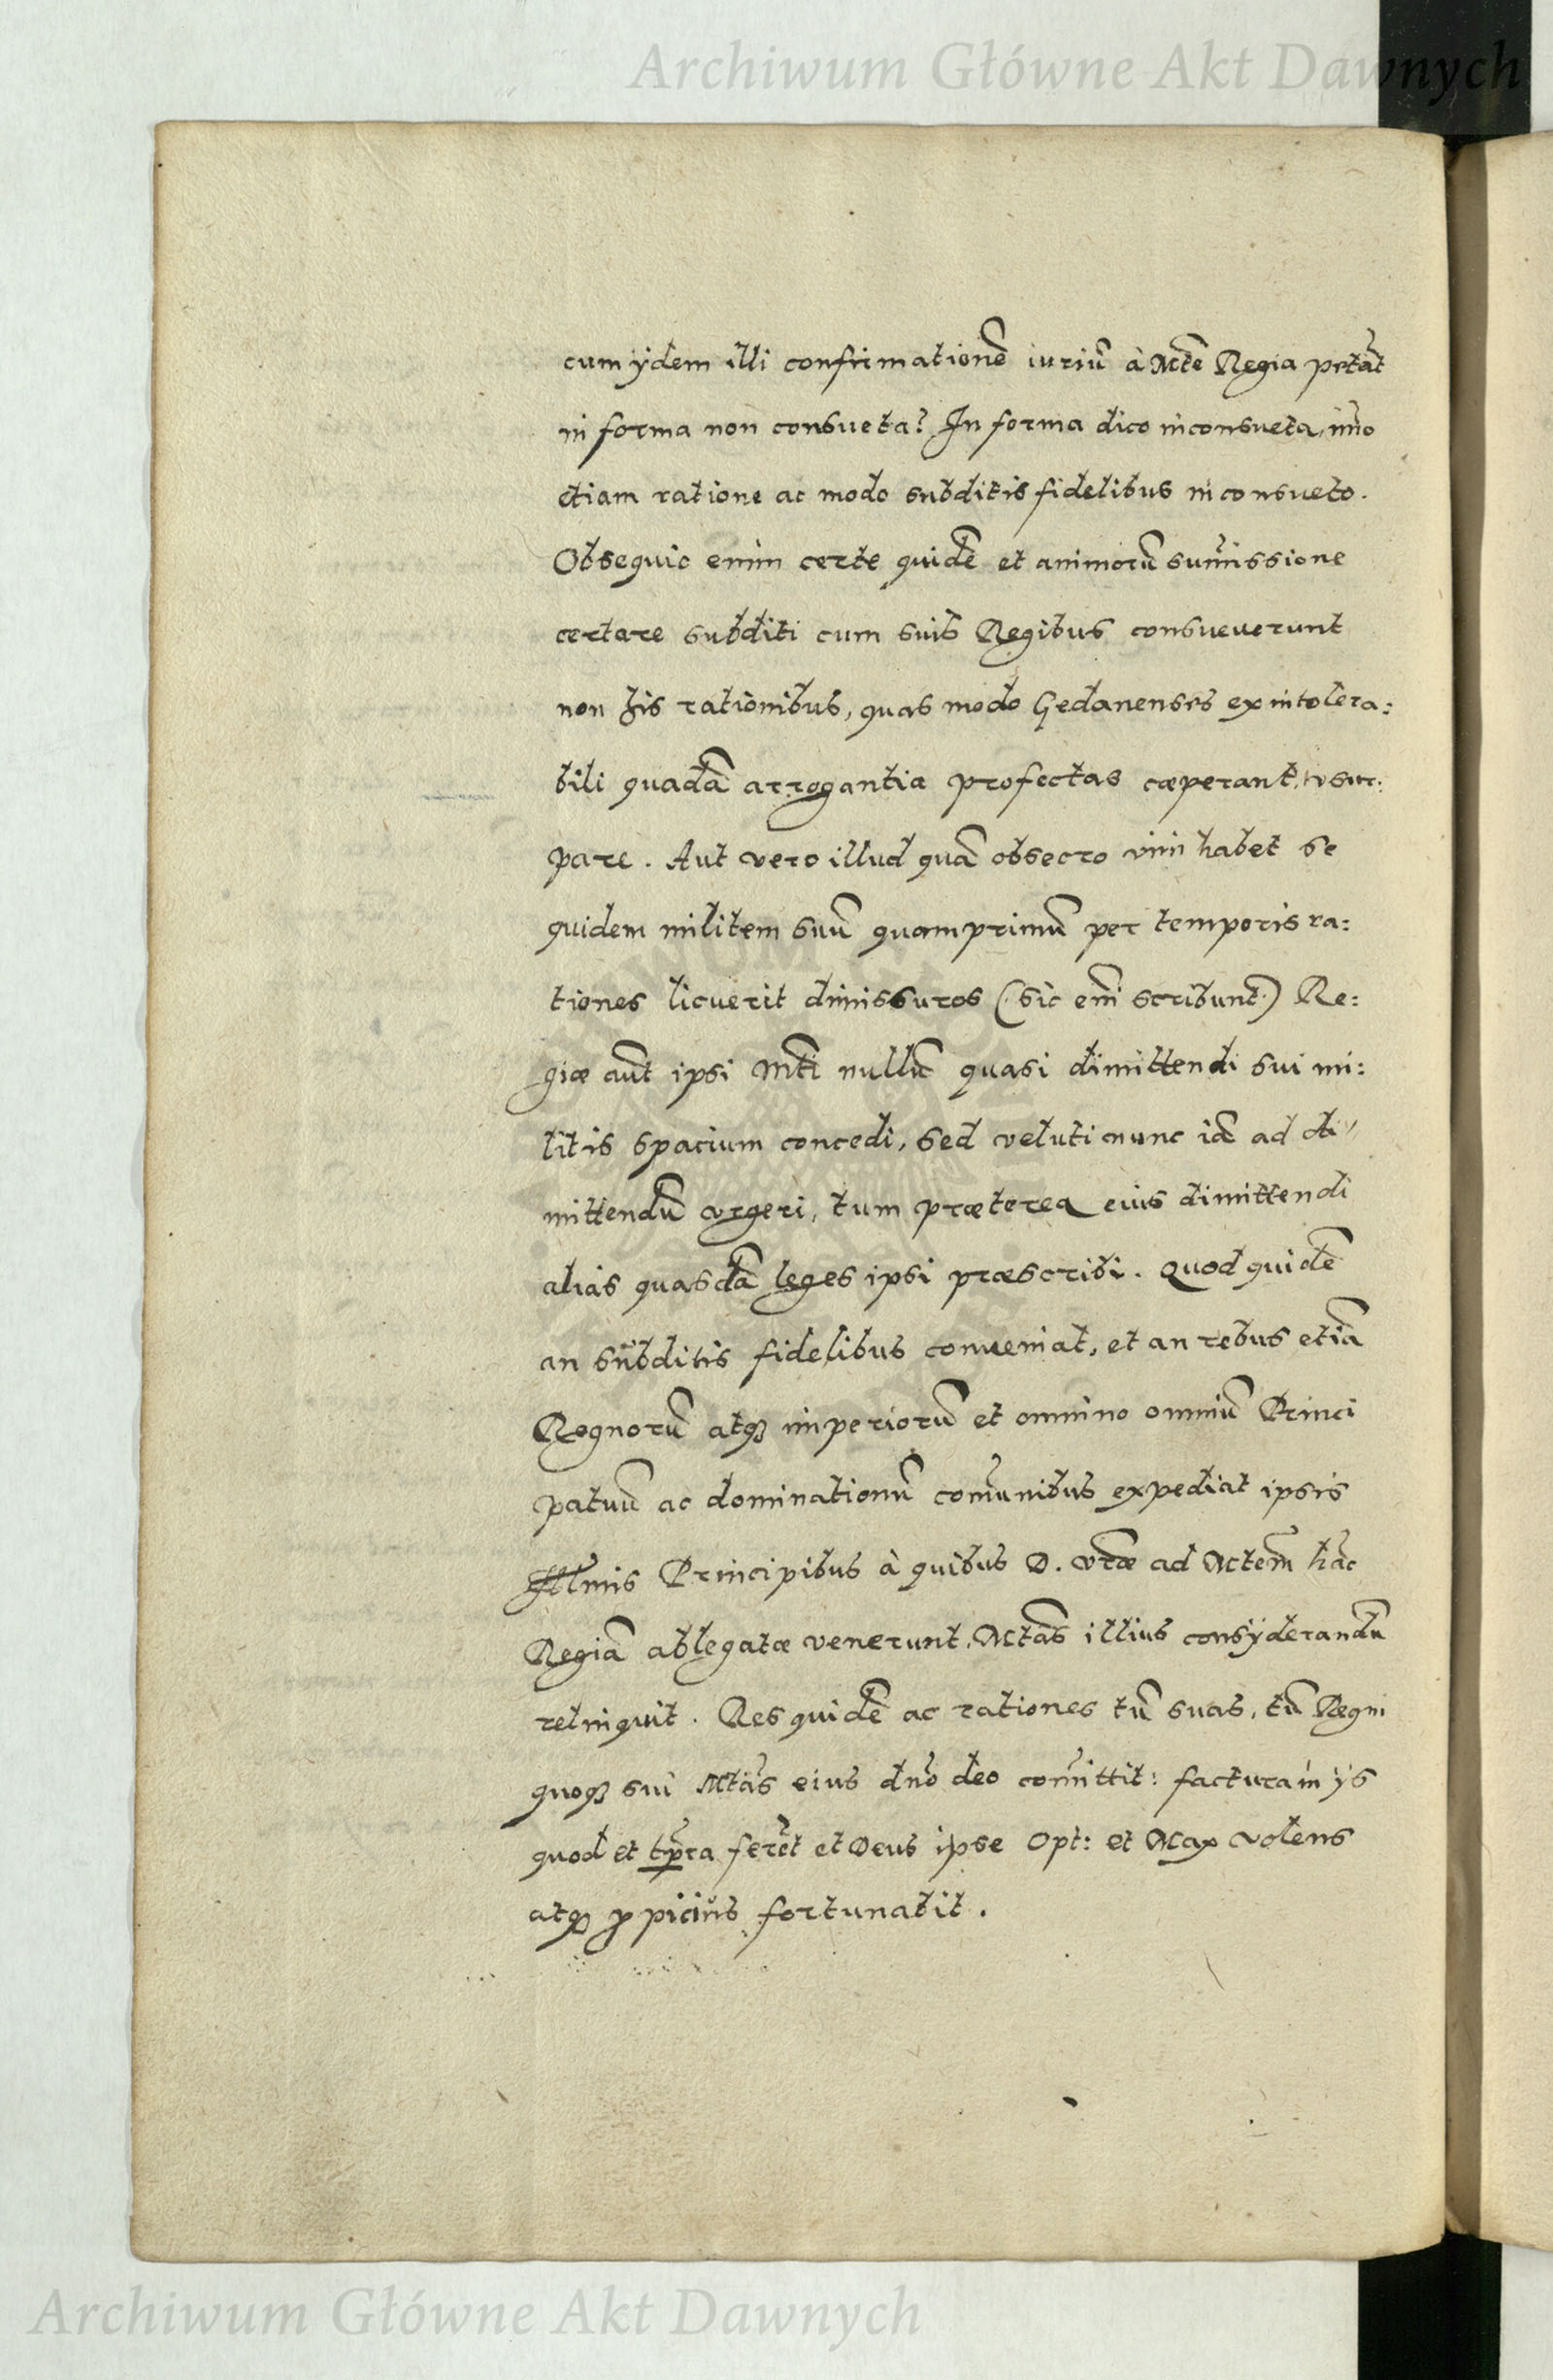 Archiwum Główne Akt Dawnych
cum ÿdem illi confirmationẽ iuriũ à Mtẽ Regia petãt
in forma non consueta? In forma dico inconsueta, im̃o
etiam ratione ac modo subditis fidelibus inconsueto.
Obsequio enim certe quidẽ et animorũ sum̃issione
certare subditi cum suis Regibus consueuerunt
non his rationibus, quas modo Gedanenses ex intolera:
bili quadã arrogantia profectas cæperant, vsur:
pare. Aut vero illud quã obsecro vim habet se
quidem militem suũ quamprimũ per temporis ra:
tiones licuerit dimissuros (sic em̃ scribunt) Re:
giæ aũt ipsi Mti nullũ quasi dimittendi sui mi:
litis spacium concedi, sed veluti nunc iã ad di
mittendũ vrgeri, tum præterea eius dimittendi
alias quasdã leges ipsi præscribi. Quod quidẽ
an subditis fidelibus conueniat, et an rebus etiã
Regnorũ atqꝫ imperiorũ et omnino omniũ Princi
patuũ ac dominationũ com̃unibus expediat ipsis
Illmis Principibus à quibus D. vrãe ad Mtem̃ hãc
Regiã ablegatæ venerunt, Mtãs illius consÿderandũ
relinquit. Res quidẽ ac rationes tũ suas, tũ Regni
quoqꝫ sui Mtãs eius dño deo com̃ittit: factura in ÿs
quod et tp̃ra ferẽt et Deus ipse Opt: et Max volens
atqꝫ ꝓpicius fortunabit.
Archiwum Główne Akt Dawnych